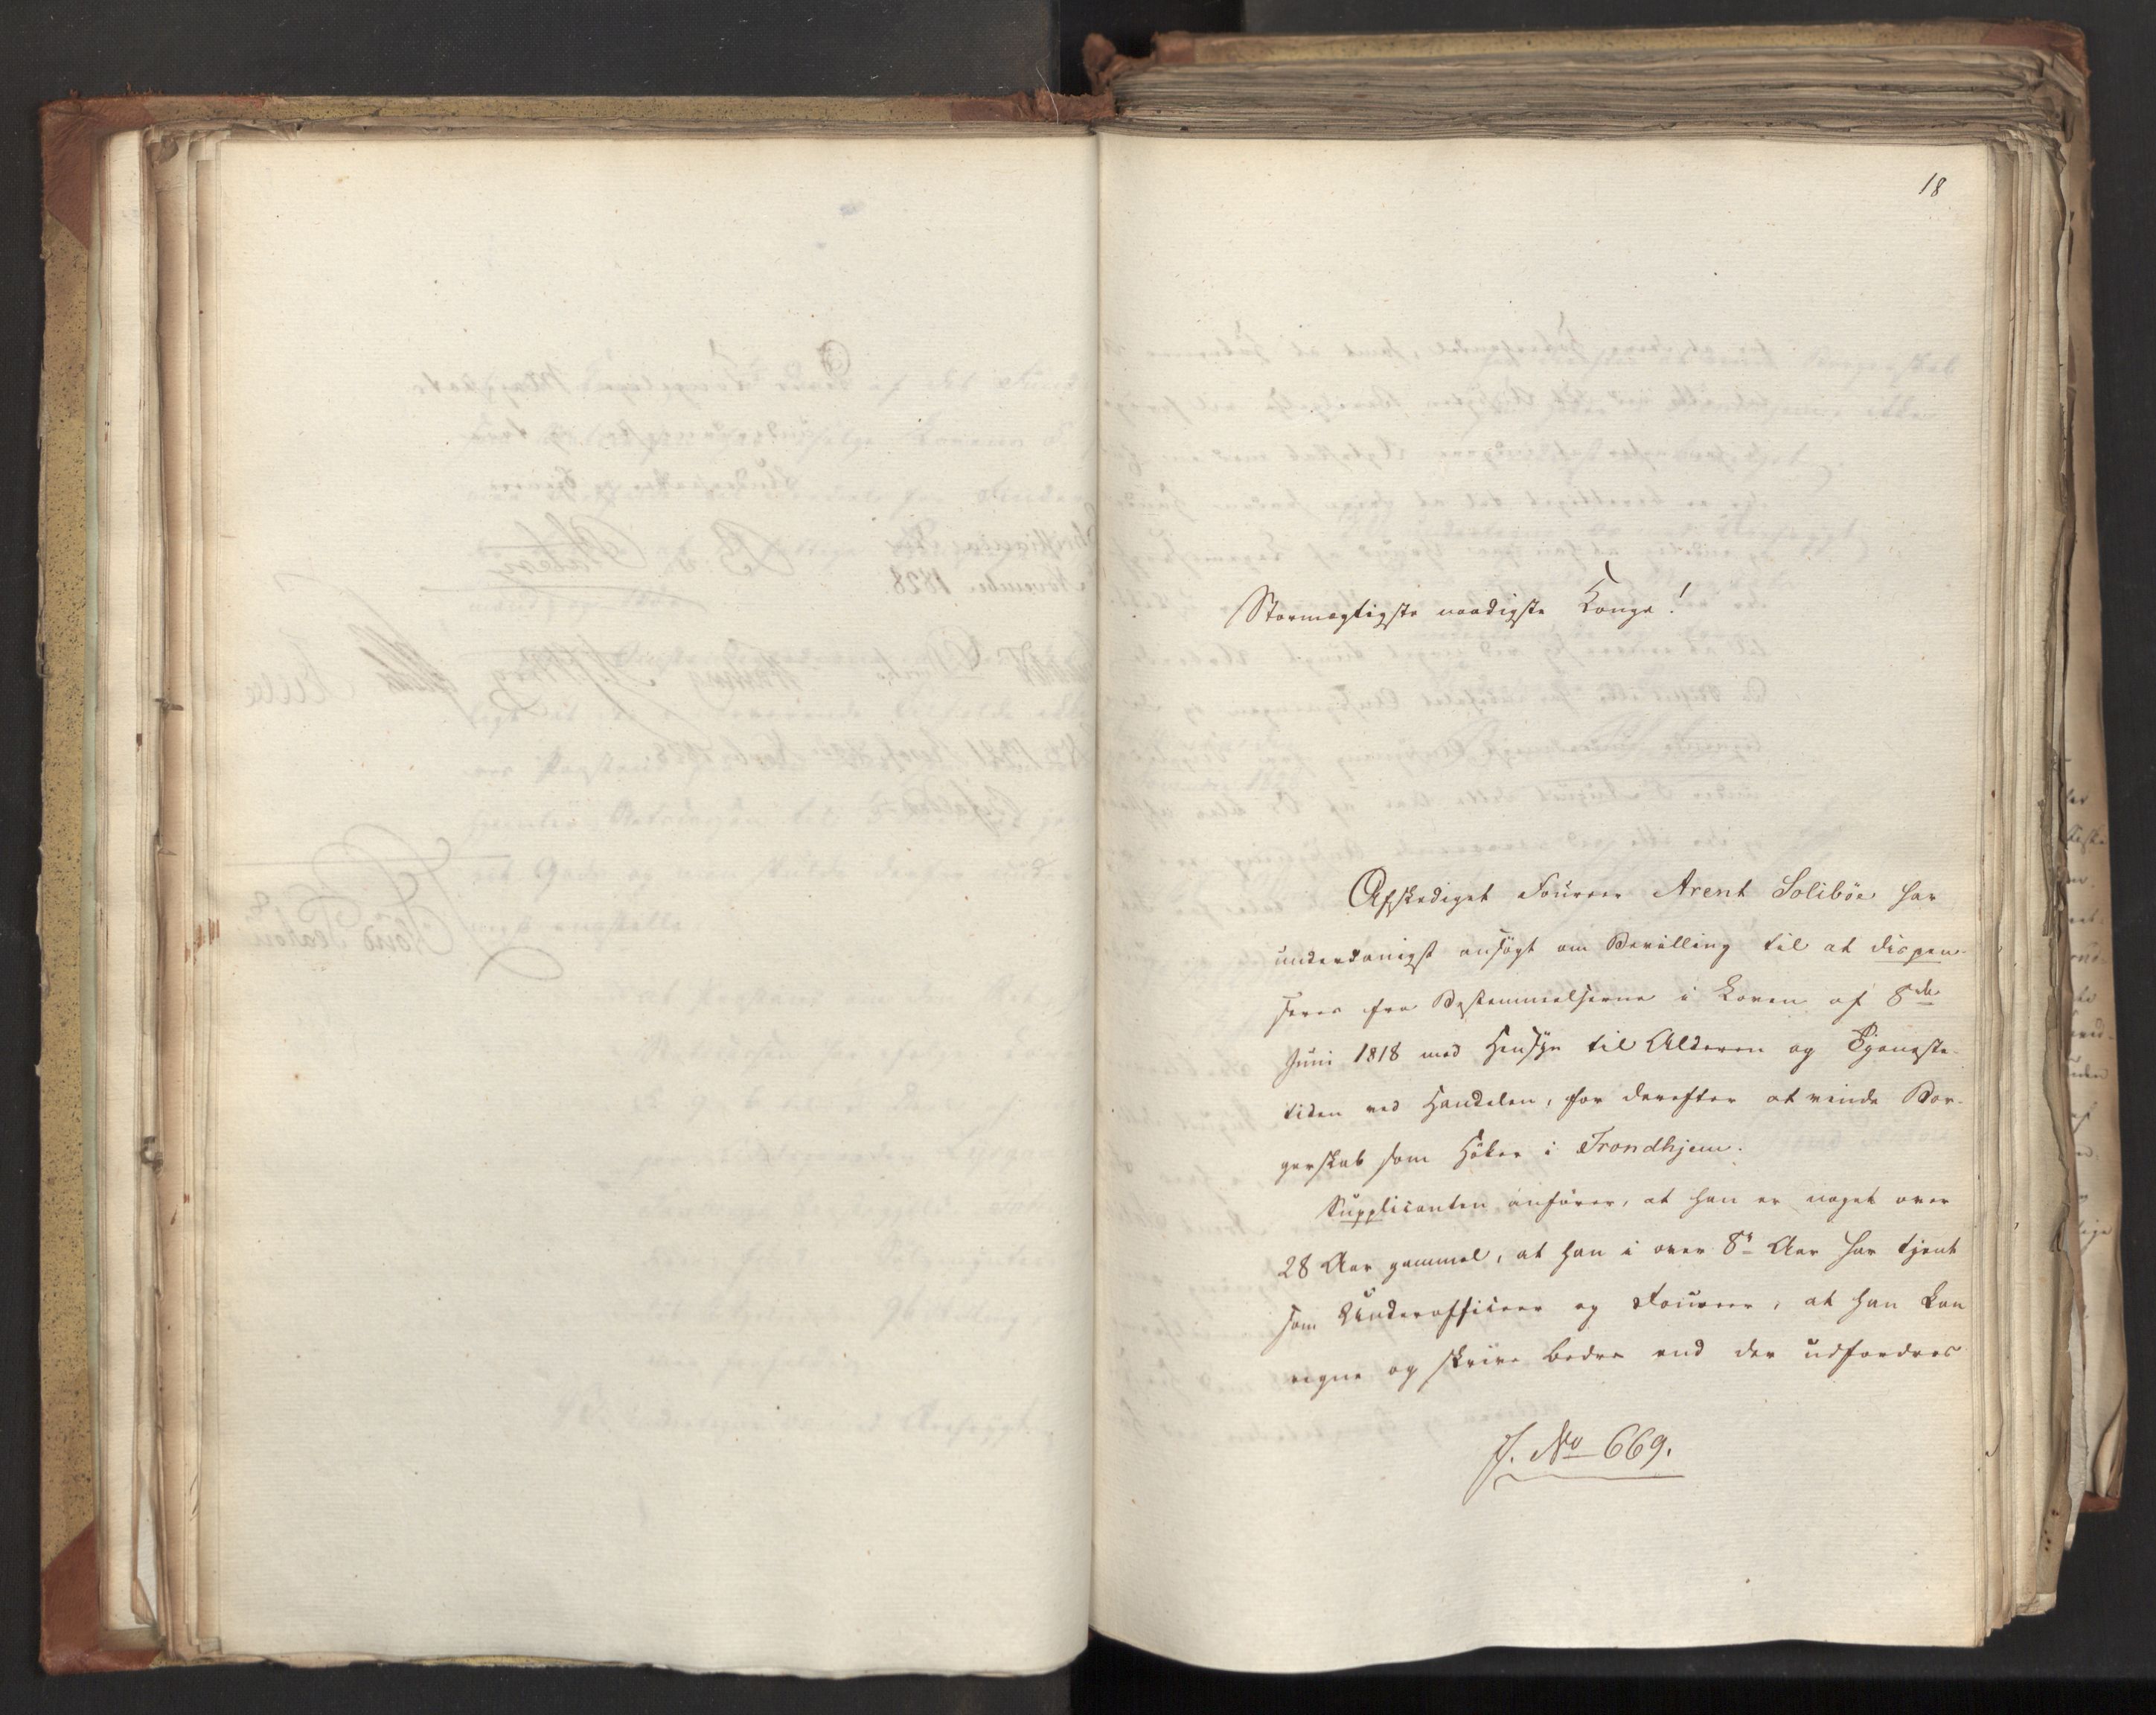 18
Stormægtigste naadigste Konge!
Afskediget Fourer Arent Solibøe har
underdanigst ansøgt om Bevilling til at dispen-
seres fra Bestemmelserne i Loven af 8de
Juni 1818 med Hensyn til Alderen og Tjeneste-
tiden ved Handelen, for derefter at vinde Bor-
gerskab som Høker i Trondhjem.
Supplicanten anfører, at han er noget over
28 Aar gammel, at han i over 8te Aar har tjent
som Underofficeer og Foureer, at han kan
regne og skrive bedre end der udfordres
J. No 669.